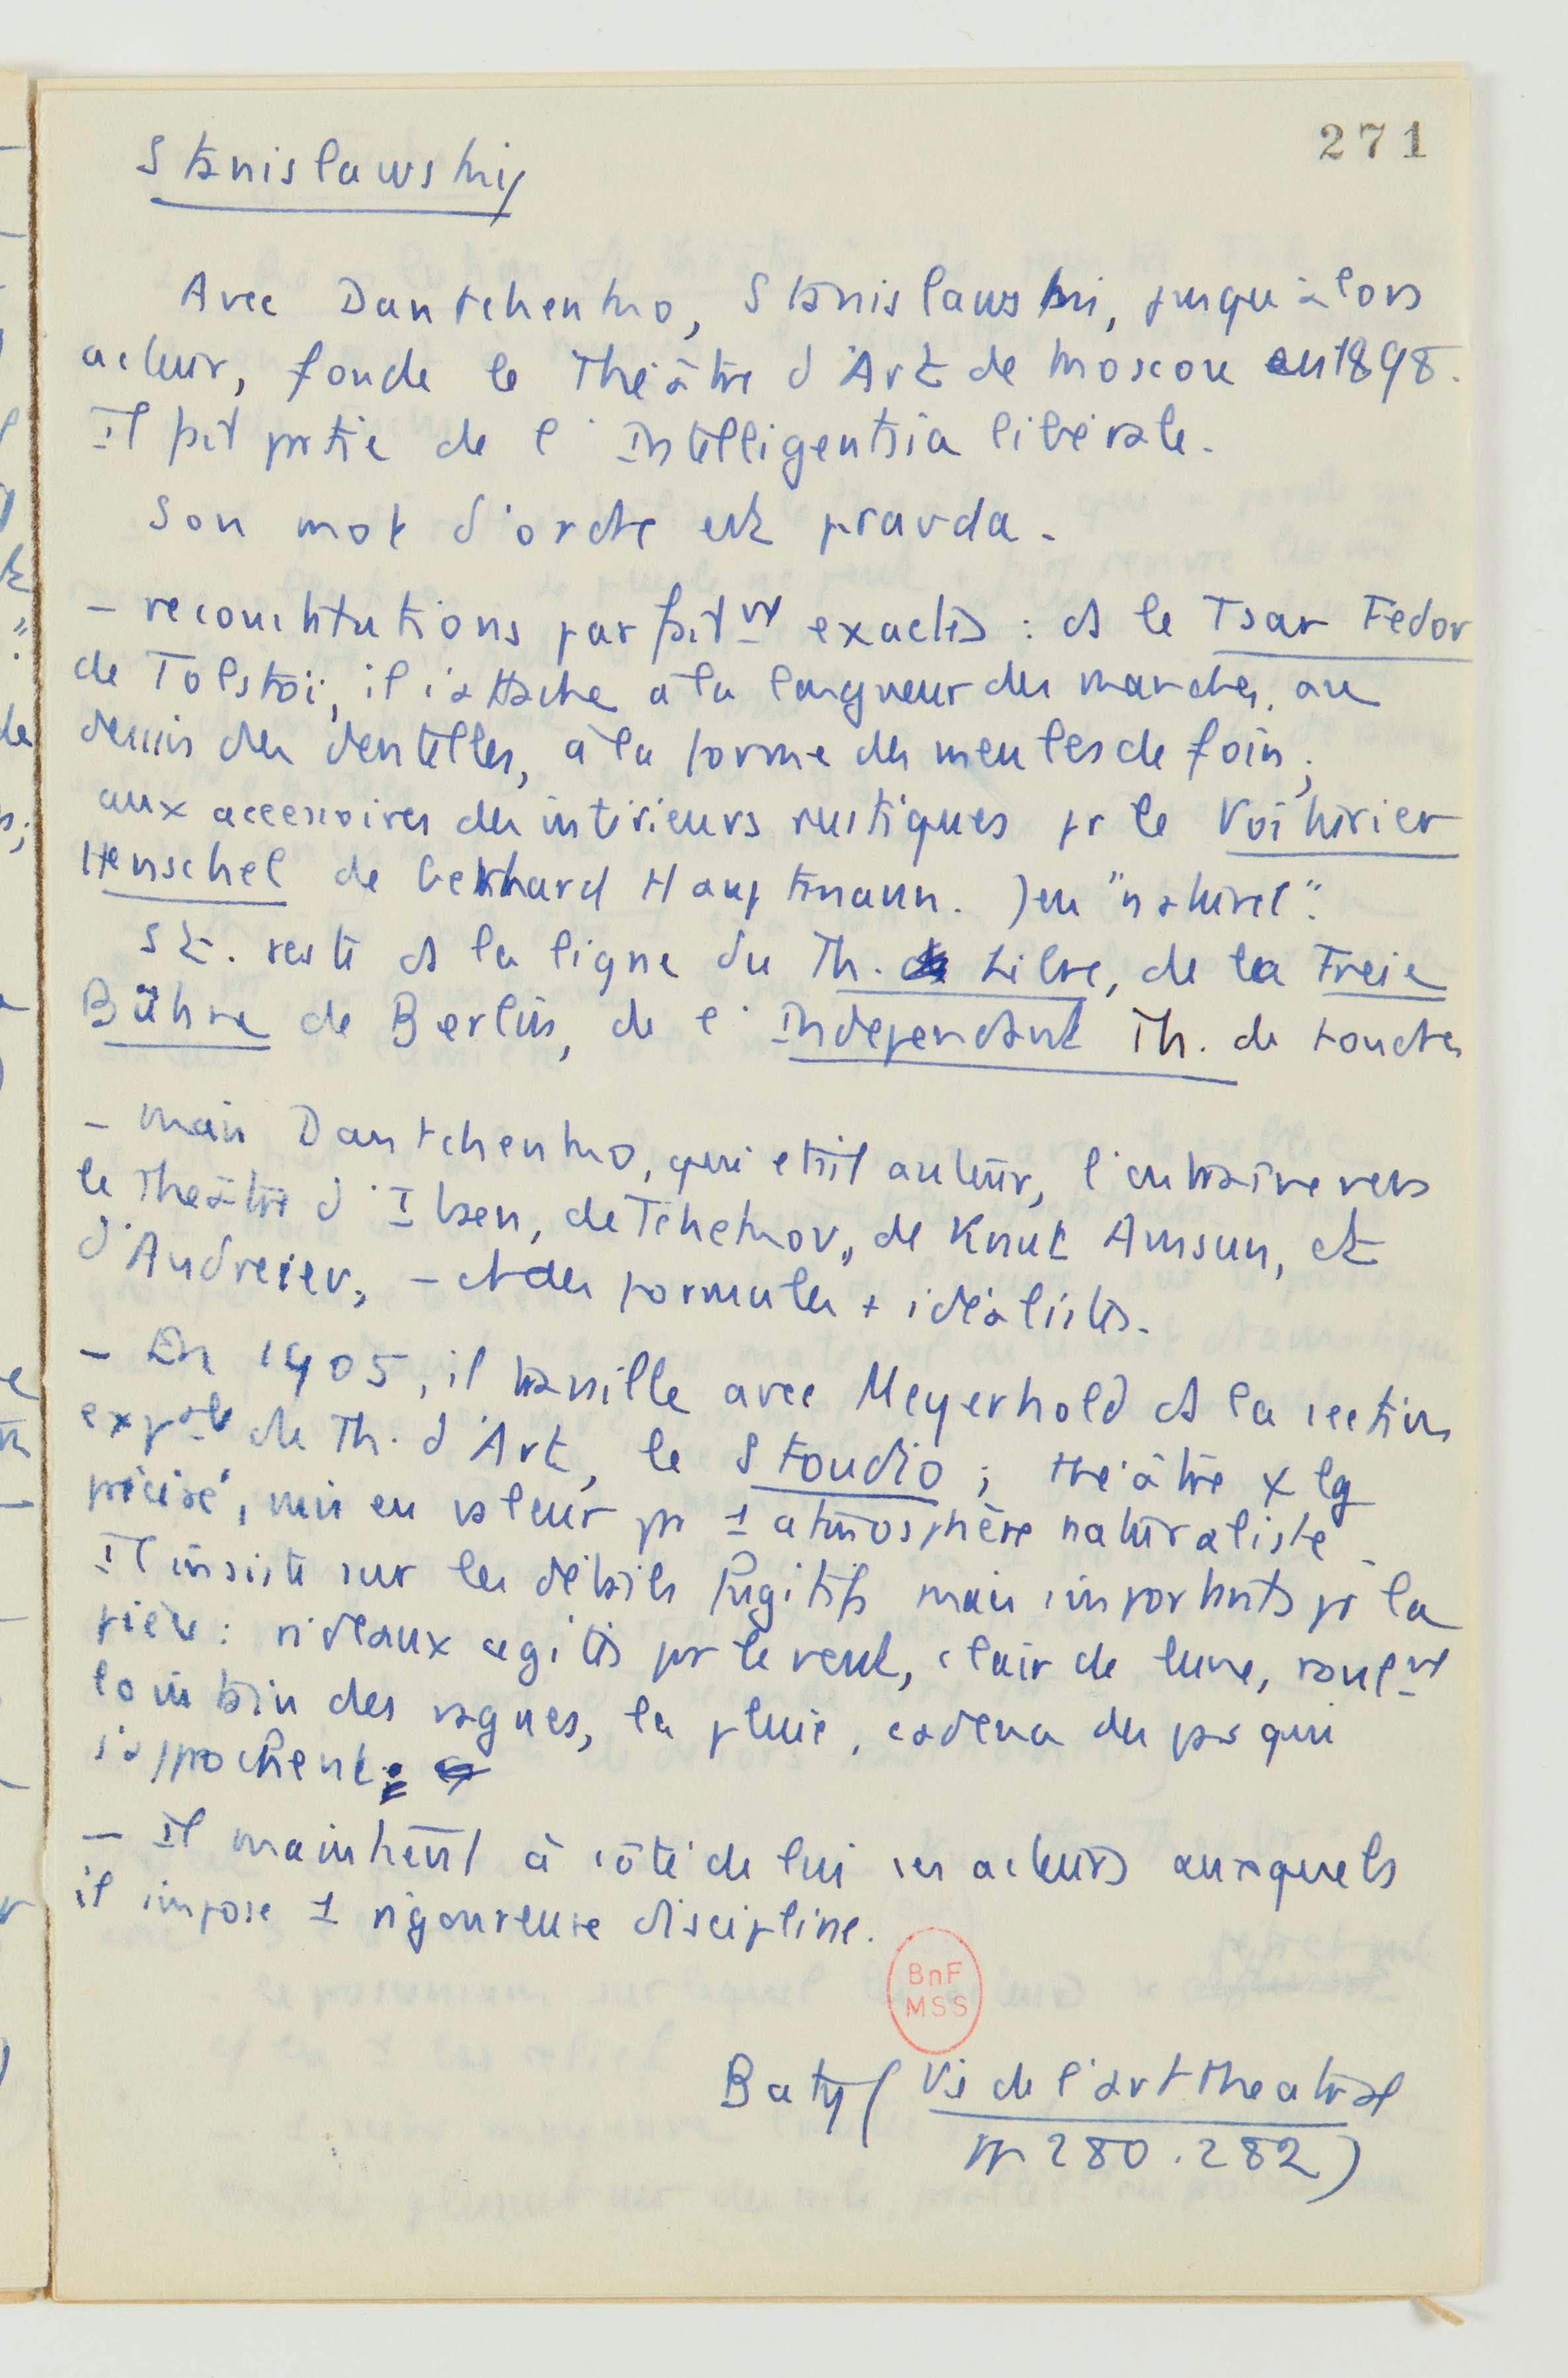 271
Stanislawsky
Avec Dantchenko, Stanislawski, jusqu'alors
acteur, fonde le Théâtre d'Art de Moscou en 1898.
Il fait partie de l'Intelligentsia libérale.
Son mot d'ordre est pravda.
- reconstitutions parfaitmt exactes : ds le Tsar Fedor
de Tolstoï, il s'attache à la longueur des manches, au
dessin des dentelles, à la forme des meules de foin ;
aux accessoires des intérieurs rustiques pr le Voiturier
Henschel de Gerhard Hauptmann. Jeu "naturel".
St. reste ds la ligne du Th. Libre, de la Freie
Bühne de Berlin, de l'Independant Th. de Londres
- mais Dantchenko, qui etait auteur, l'entraine vers
le Théâtre d'Ibsen, de Tchekov, de Knut Amsun, et
d'Andreiev, - et des formules + idéalistes.
- En 1905, il travaille avec Meyerhold ds la section
expale du Th. d'Art, le Stoudio ; théâtre
précisé, mis en valeur pr 1 atmosphère naturaliste.
Il insiste sur les détails fugitifs mais importants pr la
pièce : rideaux agités par le vent, clair de lune, roulmt
lointain des vagues, la pluie, cadence des pas qui
s'approchent.
- Il maintient à côté de lui ses acteurs auxquels
il impose 1 rigoureuse discipline.
BnF
MSS
Baty ( Vie de l'art theatral
pp 280.282)